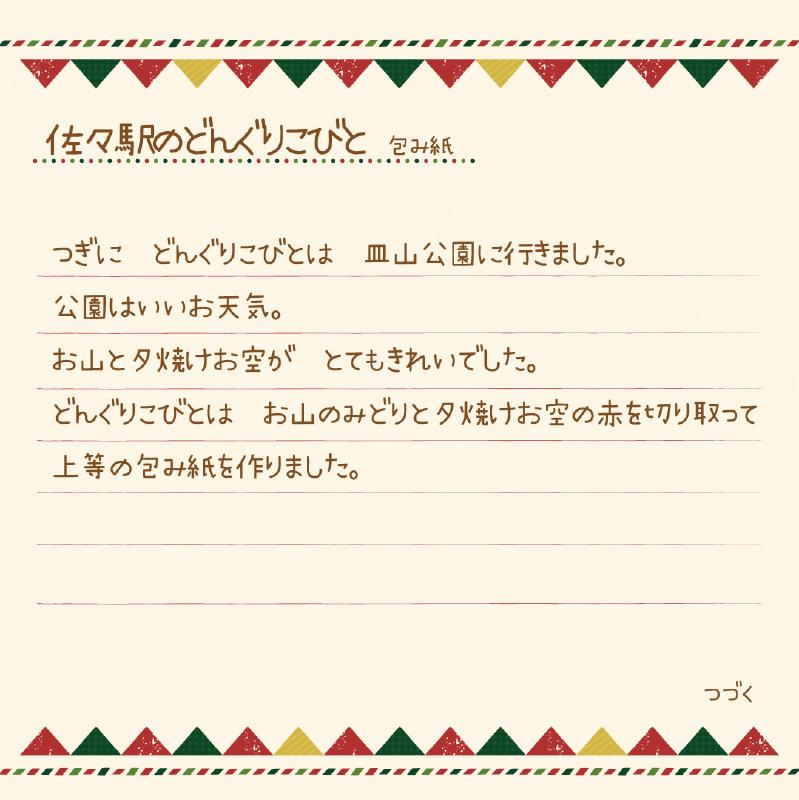 佐々駅のどんぐりこびと 包み紙
つぎに どんぐりこびとは 皿山公園に行きました。
公園はいいお天気。
お山と夕焼けお空が とてもきれいでした。
どんぐりこびとは お山のみどりと夕焼けお空の赤を切り取って
上等の包み紙を作りました。
つづく